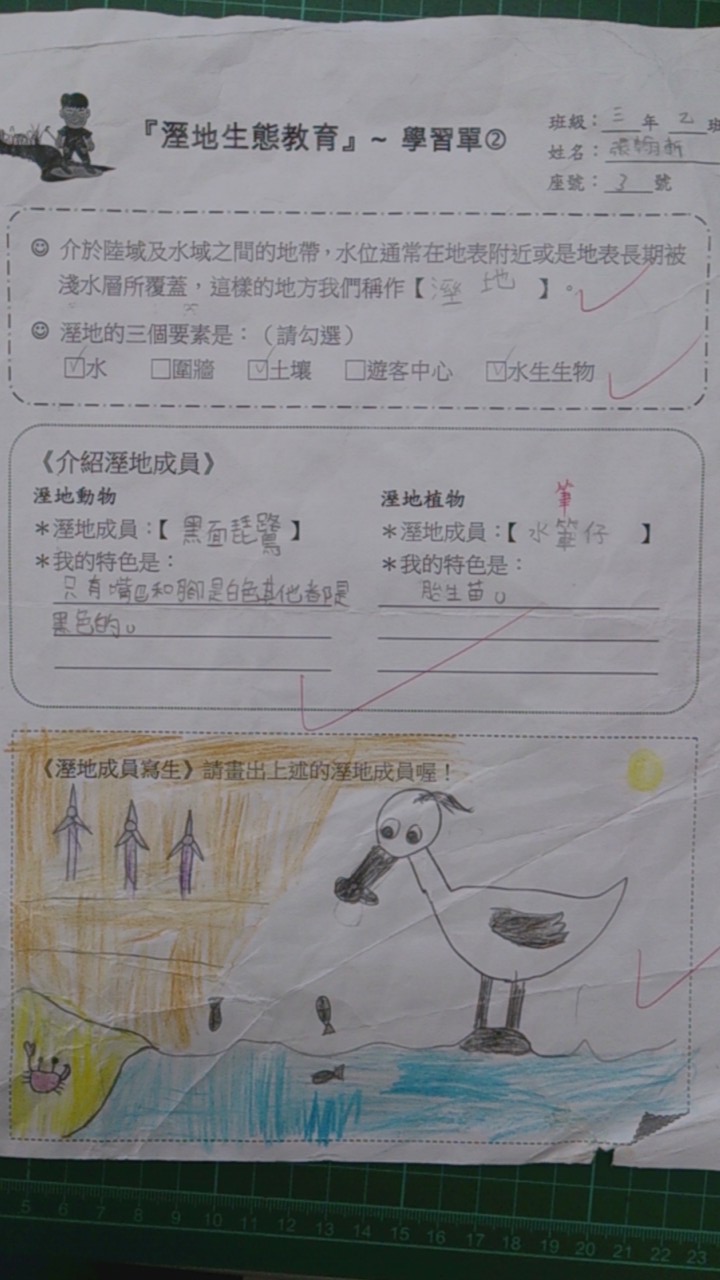 『溼地生態教育』~ 學習單②
班級：三 年 乙 班
姓名：
座號：3 號
介於陸域及水域之間的地帶，水位通常在地表附近或是地表長期被
淺水層所覆蓋，這樣的地方我們稱作【溼地】。
溼地的三個要素是：（請勾選）
☑水 □圍牆 ☑土壤 □遊客中心 ☑水生生物
《介紹溼地成員》
溼地動物
＊溼地成員：【黑面琵鷺】
＊我的特色是：
只有嘴巴和腳是白色其他都是
黑色的。
溼地植物
筆
＊溼地成員：【水筆仔】
＊我的特色是：
胎生苗。
《溼地成員寫生》請畫出上述的溼地成員喔！
5 6 7 8 9 10 11 12 13 14 15 16 17 18 19 20 21 22 23